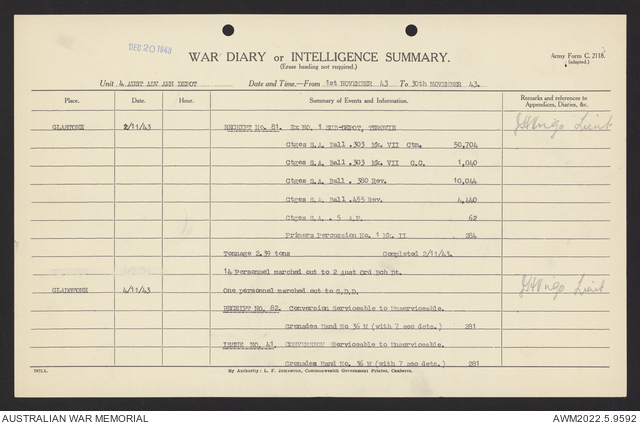 DEC 20 1943
WAR DIARY or INTELLIGENCE SUMMARY.
(Erase heading not required.)
Army Form C. 2118.
(adapted.)
Unit 4 AUST ADV AMN DEPOT Date and Time.—From 1st NOVEMBER 43 To 30th NOVEMBER 43.
Place. Date. Hour. Summary of Events and Information. Remarks and references to Appendices, Diaries, &c.
GLASTONE 2/11/43 RECEIPT No. 81. Ex NO. 1 SUB-DEPOT, TEROWIE Lieut
Ctges S.A. Ball .303 Mk. VII Ctn. 50,704
Ctges S.A. Ball .303 Mk. VII C.C. 1,040
Ctges S.A. Ball . 380 Rev. 10,044
Ctges S.A. Ball .455 Rev. 4,440
Ctges S.A. . 5 A.P. 62
Primers Percussion No. 1 Mk. II 284
Tonnage 2.39 tons Completed 2/11/43.
14 Personnel marched out to 2 Aust Ord Bch Dt.
GLADSTONE 4/11/43 One personnel marched out to G.D.D. Lieut
RECEIPT NO. 82. Conversion Serviceable to Unserviceable.
Grenades Hand No 36 M (with 7 sec dets.) 281
ISSUE NO. 41. CONVERSION Serviceable to Unserviceable.
Grenades Hand No. 36 M (with 7 sec dets.) 281
By Authority: L. F. Johnston, Commonwealth Government Printer, Canberra.
AUSTRALIAN WAR MEMORIAL AWM2022.5.9592